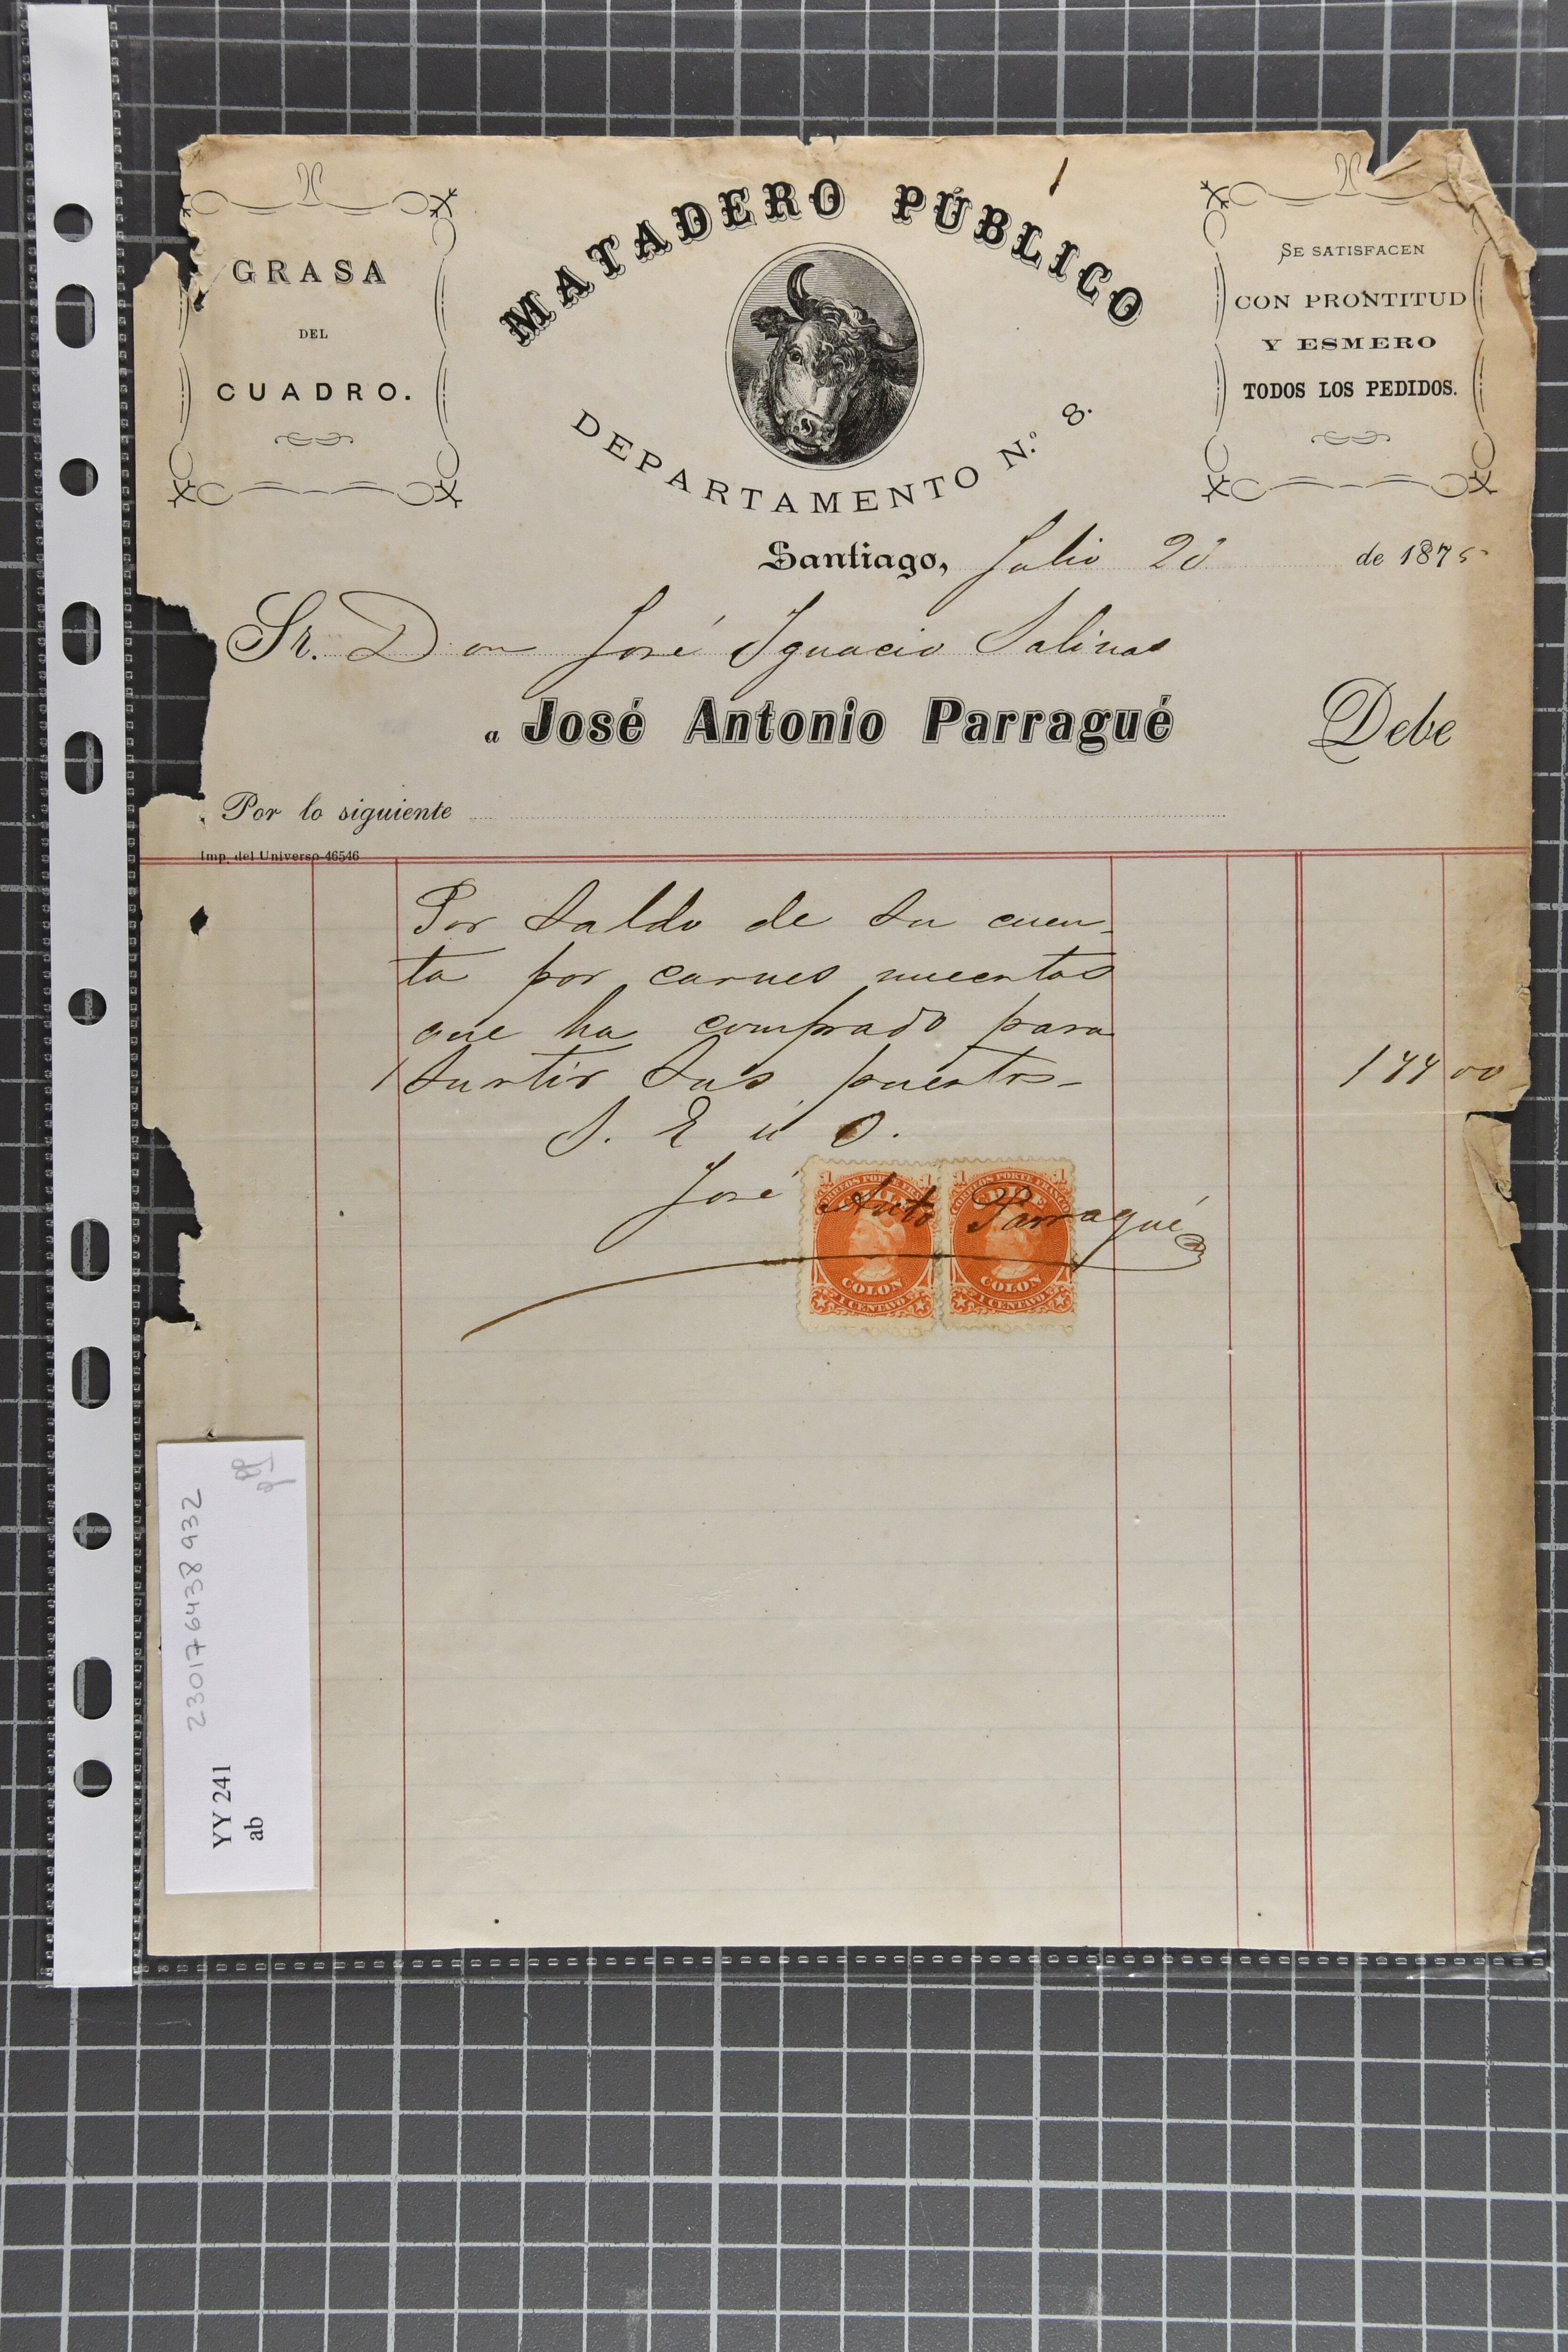 GRASA
DEL
CUADRO.
MATADERO PÚBLICO
DEPARTAMENTO N.º 8.
SE SATISFACEN
CON PRONTITUD
Y ESMERO
TODOS LOS PEDIDOS.
Santiago, Julio 20 de 1875
Sr. Don José Ignacio Salinas
a José Antonio Parragué Debe
Por lo siguiente
Imp. del Universo-46546
Por Saldo de Su cuen-
ta por carnes muertas
que ha comprado para
Surtir Sus puestos- 144 00
S. E ú O.
José Anto Parragué
1 CORREOS PORTE FRANCO 1
CHILE
COLON
1 CENTAVO
1 CORREOS PORTE FRANCO 1
CHILE
COLON
1 CENTAVO
230176438932
YY 241
ab